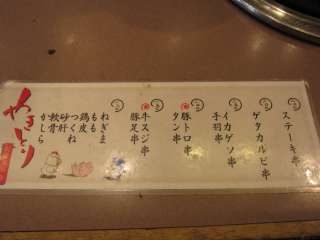 ステーキ串
ゲタカルビ串
イカゲソ串
手羽串
豚トロ串
タン串
牛スジ串
豚足串
ねぎま
もも
鶏皮
つくね
砂肝
軟骨
かしら
やきとり